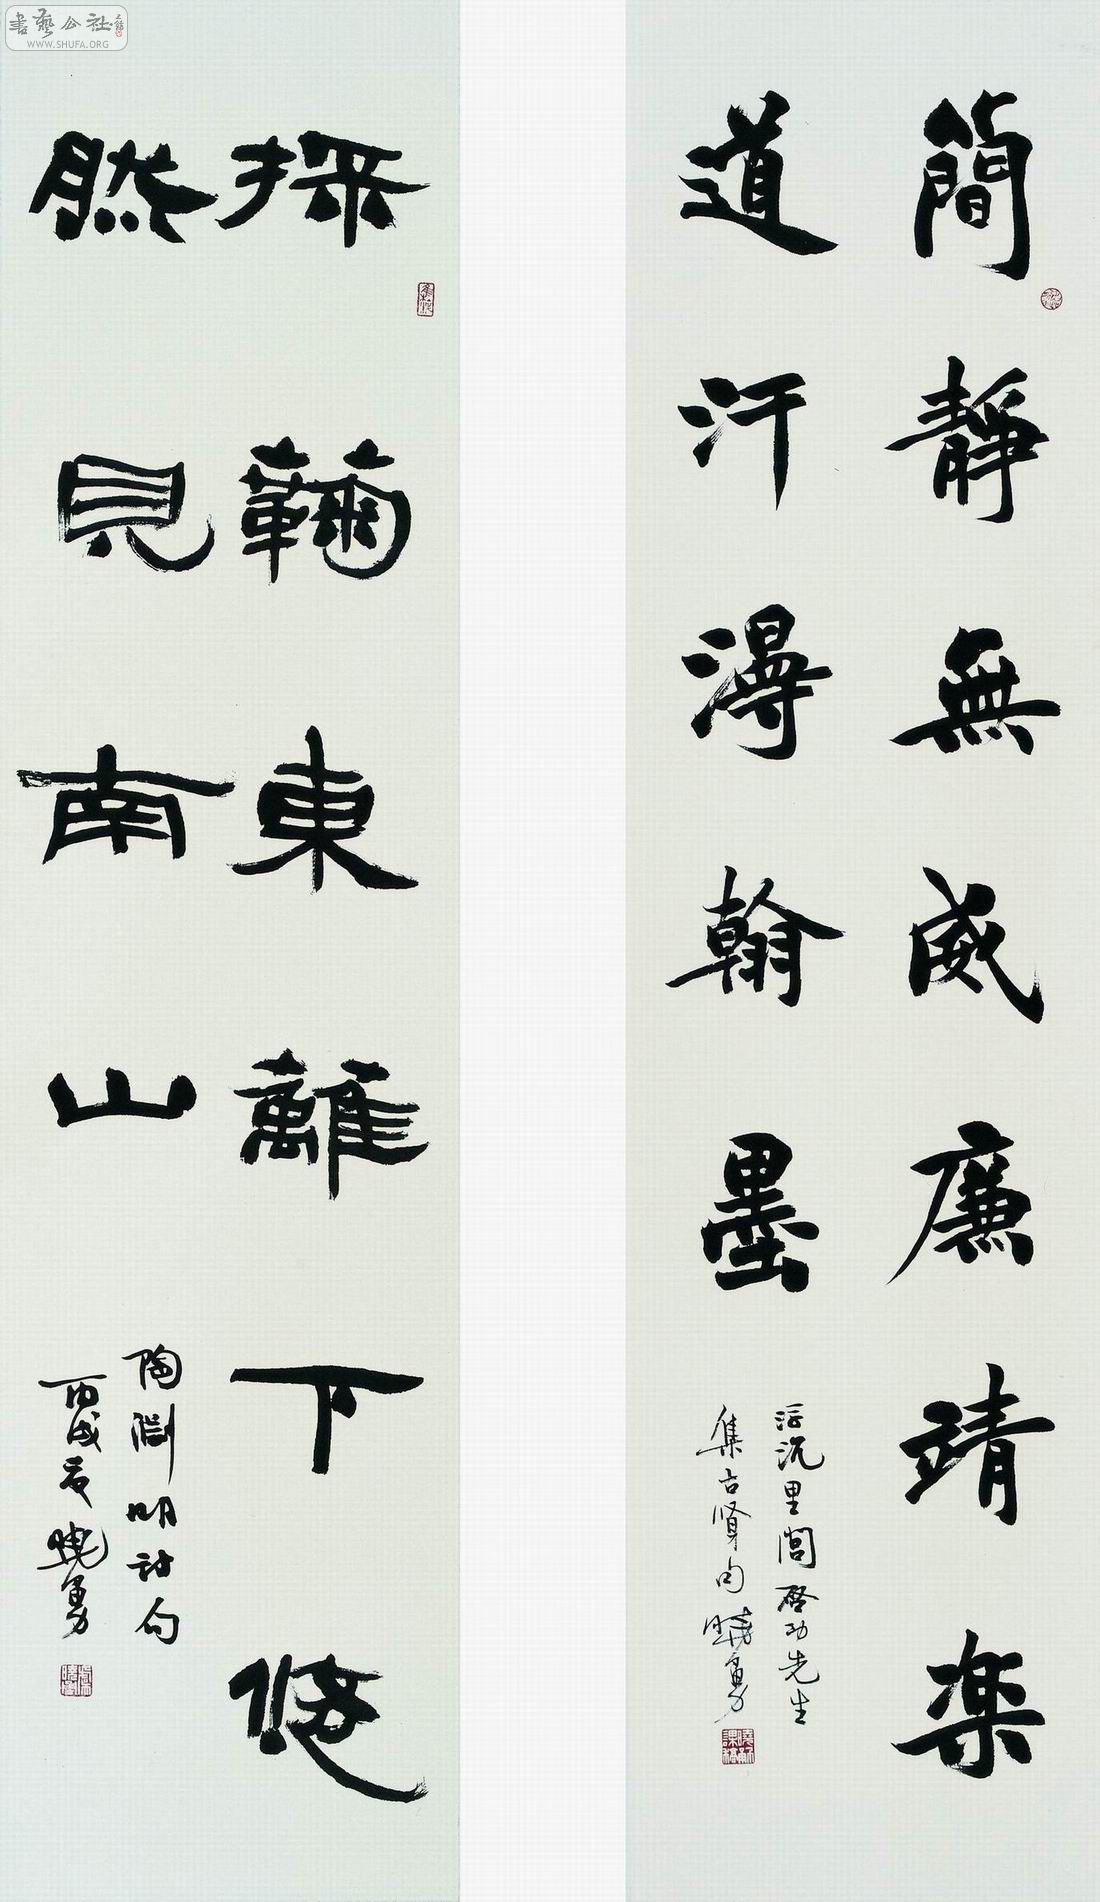 簡靜無威廉靖楽
道汗淂翰墨
浮沉里閭啓功先生
集古賢句曉勇
採鞠東離下悠
然見南山
陶淵明詩句
丙戌夏曉勇
書藝公社
WWW.SHUFA.ORG